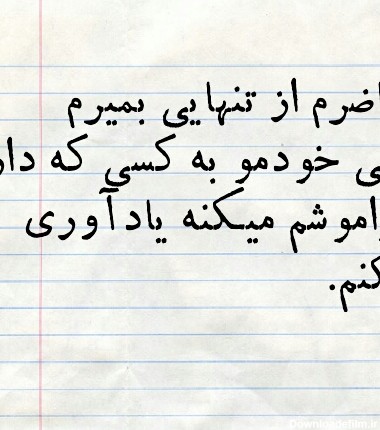 اضرم از تنهایی بمیرم
ی خودمو به کسی که دار
اموشم میکنه یادآوری
کنم.